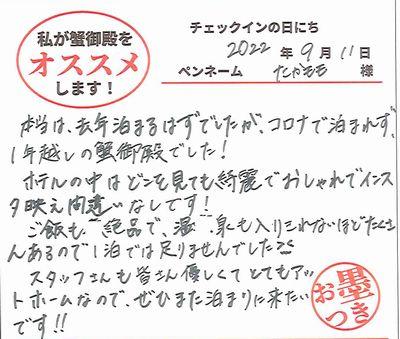 私が蟹御殿を
オススメ
します！
チェックインの日にち
2022年9月11日
ペンネーム たかもも 様
本当は、去年泊まるはずでしたが、コロナで泊まれず、
1年越しの蟹御殿でした！
ホテルの中はどこを見ても綺麗でおしゃれでインス
タ映え間違いなしです！
ご飯も絶品で、温泉も入りきれないほどたくさ
んあるので1泊では足りませんでした
スタッフさんも皆さん優しくてとてもアッ
トホームなので、ぜひまた泊まりに来たい
です!!
お墨つき